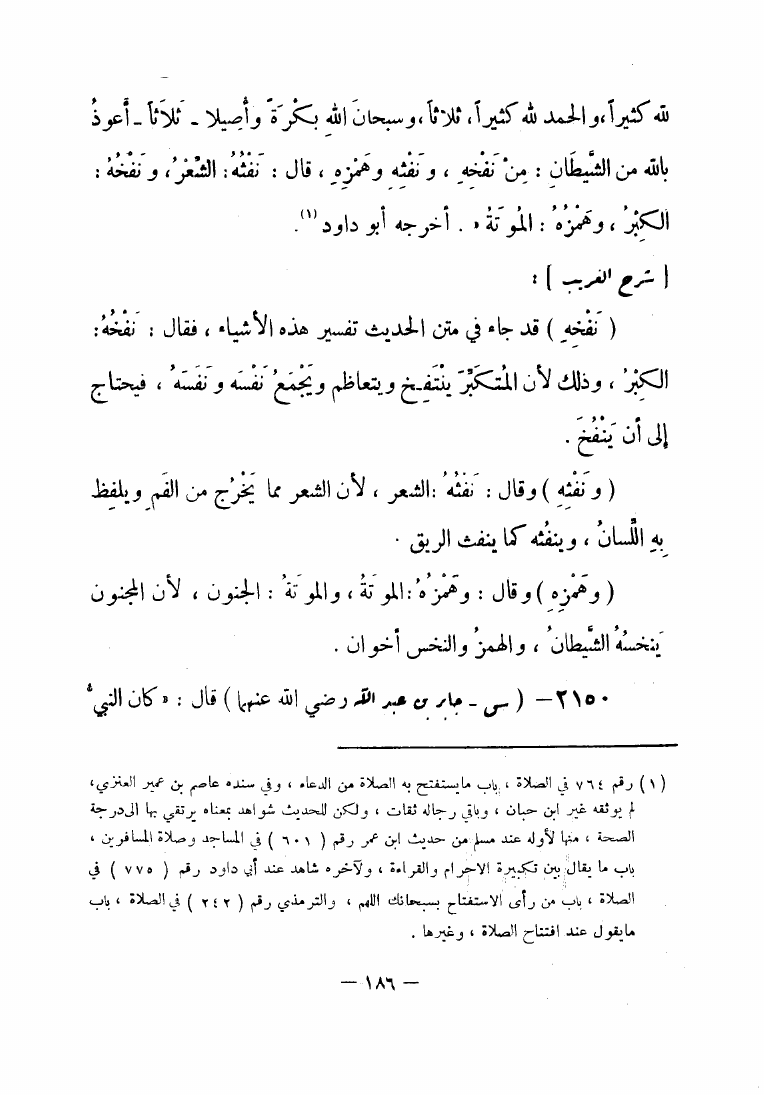 لله كثيراً، والحمد لله كثيراً، ثلاثاً، وسبحانَ اللهِ بكْرَةً وأَصِيلا ـ ثَلاَثاً ـ أَعوذُ
بالله من الشَّيطَانِ : مِنْ نَفْخِهِ ، و نَفْثِهِ وهَمْزِهِ ، قال : نَفْثُهُ: الشِّعْرُ، و نَفْخُهُ :
الكِبْرُ ، وهَمْزُهُ : المُوتَةُ » . أخرجه أبو داود (١).
[ شرح الغريب ] :
( نَفْخِهِ ) قد جاء في متن الحديث تفسير هذه الأشياء ، فقال : نَفْخُهُ:
الكِبْرُ ، وذلك لأن المُتكَبِّرَ يَنْتَفِخ ويتعاظم ويَجْمَعُ نَفْسَه ونَفَسَهُ ، فيحتاج
إلى أن يَنْفُخَ .
( ونَفْثِهِ ) وقال : نَفْثُهُ :الشعر ، لأن الشعر مما يَخْرُج من الفَمِ ويلفِظ
بِهِ اللِّسانُ ، وينفُثه كما ينفث الريق .
( وهَمْزِهِ ) وقال : وهَمْزُهُ:الموتَةُ ، والموتَةُ : الجنون ، لأن المجنون
يَنخسُهُ الشَّيطانُ ، والهمزُ والنخس أخوان .
٢١٥٠ـ ( س ـ جابر بن عبد الله رضي الله عنهما ) قال : « كان النبيُّ
(١) رقم ٧٦٤ في الصلاة ، باب مايستفتح به الصلاة من الدعاء ، وفي سنده عاصم بن عمير العنزي،
لم يوثقه غير ابن حبان ، وباقي رجاله ثقات ، ولكن للحديث شواهد بمعناه يرتقي بها الى درجة
الصحة ، منها لأوله عند مسلم من حديث ابن عمر رقم ( ٦٠١ ) في المساجد وصلاة المسافرين ،
باب ما يقال بين تكبيرة الاحرام والقراءة ، ولآخره شاهد عند أبي داود رقم ( ٧٧٥ ) في
الصلاة ، باب من رأى الاستفتاح بسبحانك اللهم ، والترمذي رقم ( ٢٤٢ ) في الصلاة ، باب
مايقول عند افتتاح الصلاة ، وغيرها .
— ١٨٦ —